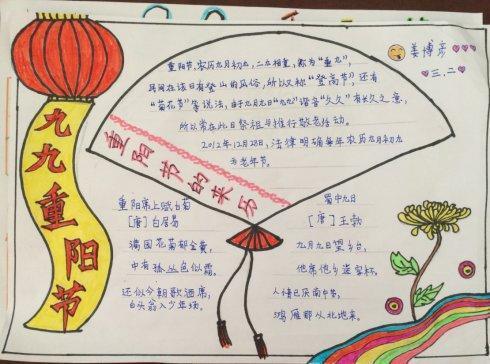 九九重阳节
重阳节的来历
重阳节,农历九月初九,二九相重,称为"重九",
民间在该日有登山的风俗,所以又称"登高节",还有
"菊花节"等说法,由于九月九日"九九"谐音"久久"有长久之意,
所以常在此日祭祖与推行敬老活动。
2012年12月28日,法律明确每年农历九月初九
为老年节。
姜博彦
三.二
重阳席上赋白菊
[唐] 白居易
满园花菊郁金黄,
中有孤丛色似霜。
还似今朝歌酒席,
白头翁入少年场。
蜀中九日
[唐] 王勃
九月九日望乡台,
他席他乡送客杯。
人情已厌南中苦,
鸿雁那从北地来。